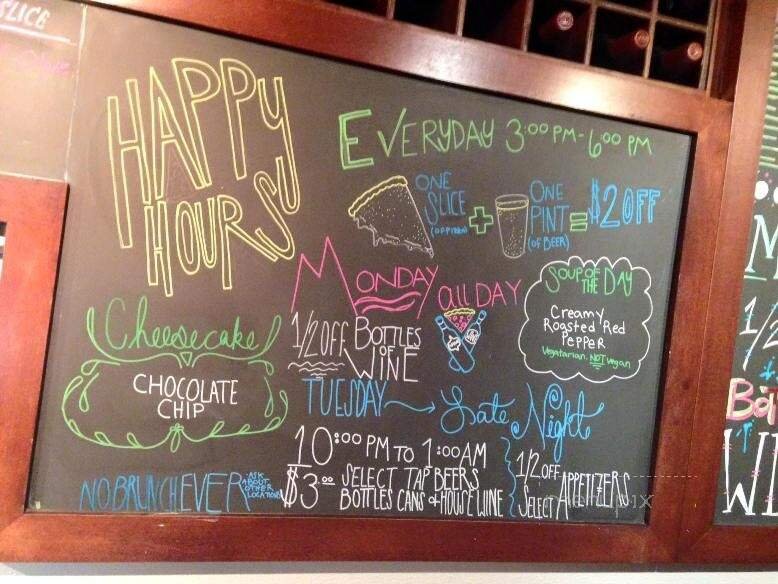 SLICE
HAPPY
HOURS
EVERYDAY 3:00 PM - 6:00 PM
ONE
SLICE
+
ONE
PINT
(OF BEER)
=
$2 OFF
MONDAY all DAY
1/2 OFF BOTTLES
OF WINE
SOUP OF THE DAY
Creamy
Roasted Red
Pepper
Vegetarian. NOT Vegan
Cheesecake
CHOCOLATE
CHIP
TUESDAY → Late Night
10:00 PM TO 1:00 AM
$3.00 SELECT TAP BEERS
BOTTLES CANS & HOUSE WINE
1/2 OFF
SELECT APPETIZERS
NO BRUNCH EVER
ASK
ABOUT
OTHER
LOCATIONS
1/2